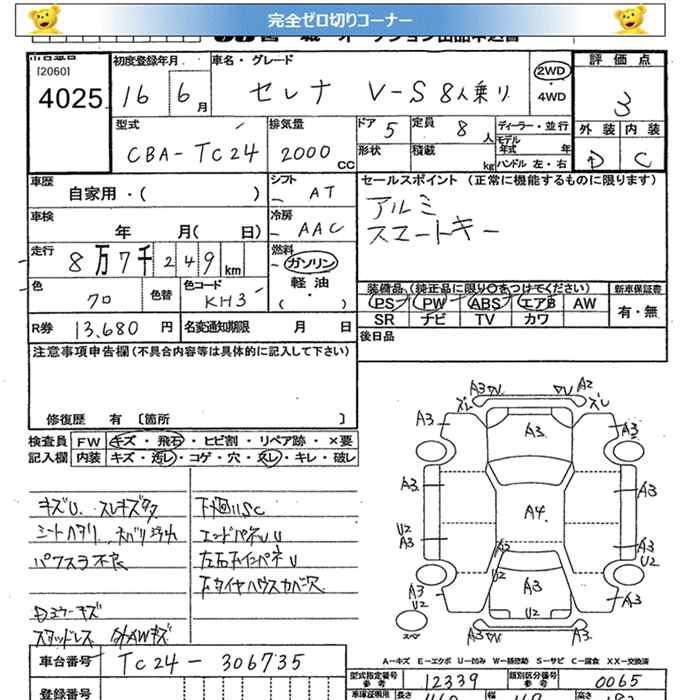 完全ゼロ切りコーナー
[2060]
4025
初度登録年月
16 6月
車名・グレード
セレナ V-S 8人乗り
2WD
4WD
評価点
3
外装 内装
D C
型式
CBA-TC24
排気量
2000 CC
ドア 5
定員 8 人
形状
積載 kg
ディーラー・並行
モデル年式 年
ハンドル 左・右
車歴
自家用・( )
シフト
AT
車検
年 月( 日)
冷房
AAC
走行
8万7千249km
燃料
ガソリン
軽油
( ・ )
色
クロ
色替
色コード
KH3
R券 13,680 円
名変通知期限 月 日
セールスポイント (正常に機能するものに限ります)
アルミ
スマートキー
装備品 (純正品に限り○をつけてください)
PS PW ABS エアB AW
SR ナビ TV カワ
新車保証書
有・無
後日品
注意事項申告欄(不具合内容等は具体的に記入して下さい)
修復歴 有 [箇所 ]
検査員記入欄
FW キズ・飛石・ヒビ割・リペア跡・×要
内装 キズ・汚レ・コゲ・穴・スレ・キレ・破レ
キズU スレキズタク
シートヘタリ
パワスラ不良
スタッドレス
エンドパネUU
左右インパネU
A3
A2
A3
A3
A3
A3
A4
A3
U2
A3
A3
U2
A3
U2
A3
U2
A3
U2
A3
A3
スペア
A-キズ E-エクボ U-凹み W-補修跡 S-サビ C-腐食 XX-交換済
車台番号 TC24-306735
登録番号
型式指定番号 参考 12339
類別区分番号 参考 0065
長さ
幅
高さ